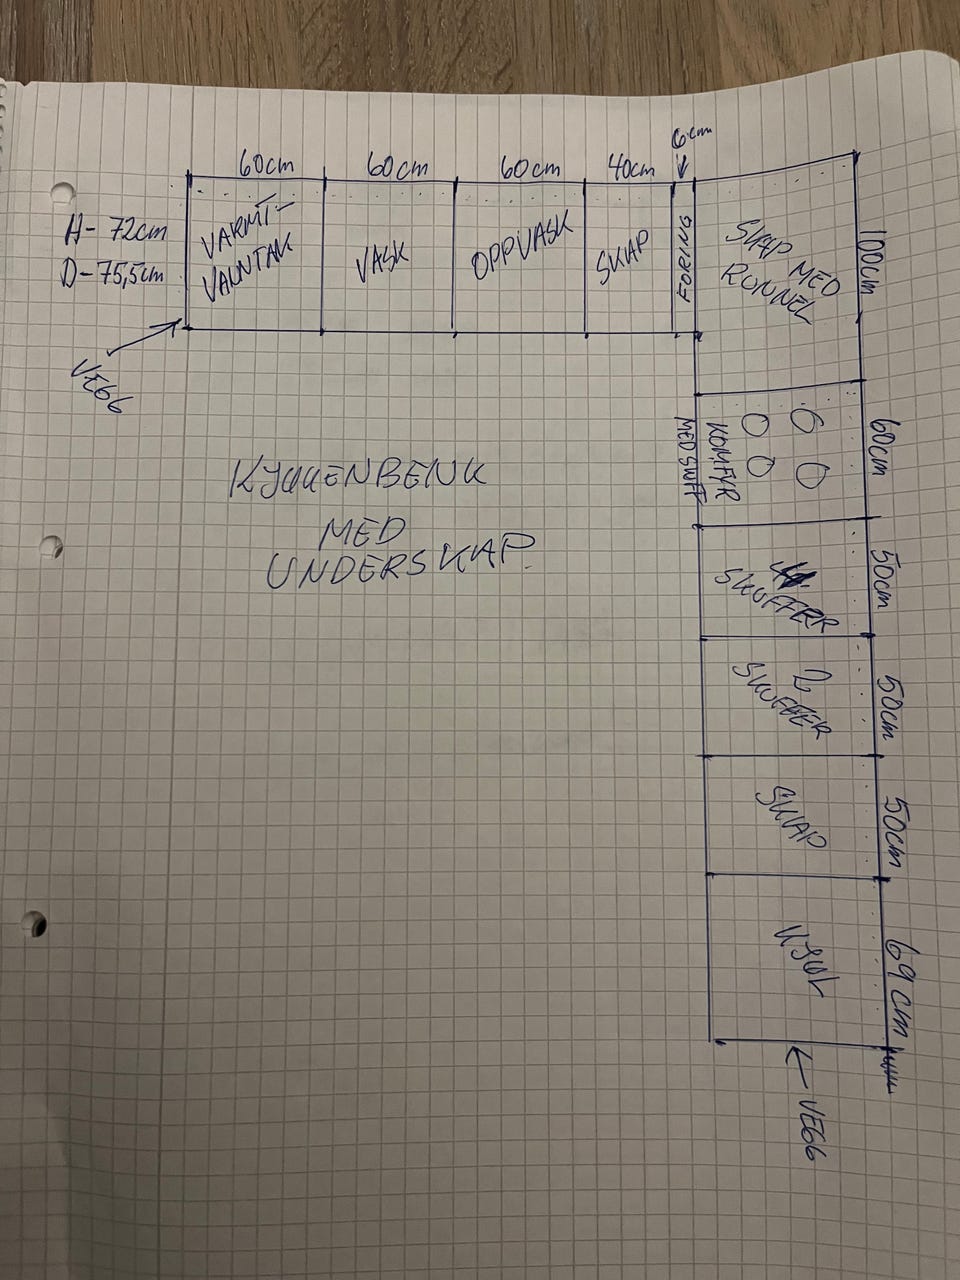 6cm
60cm
60cm
60cm
40cm
H- 72cm
D- 75,5cm
VARMT-
VANNTANK
VASK
OPPVASK
SKAP
FORING
SKAP MED
RONNEL
100cm
VEGG
KOMFYR
MED SKUFF
60cm
KJØKKENBENK
MED
UNDERSKAP.
SKUFFER
50cm
2
SKUFFER
50cm
SKAP
50cm
KJØL
69cm
VEGG